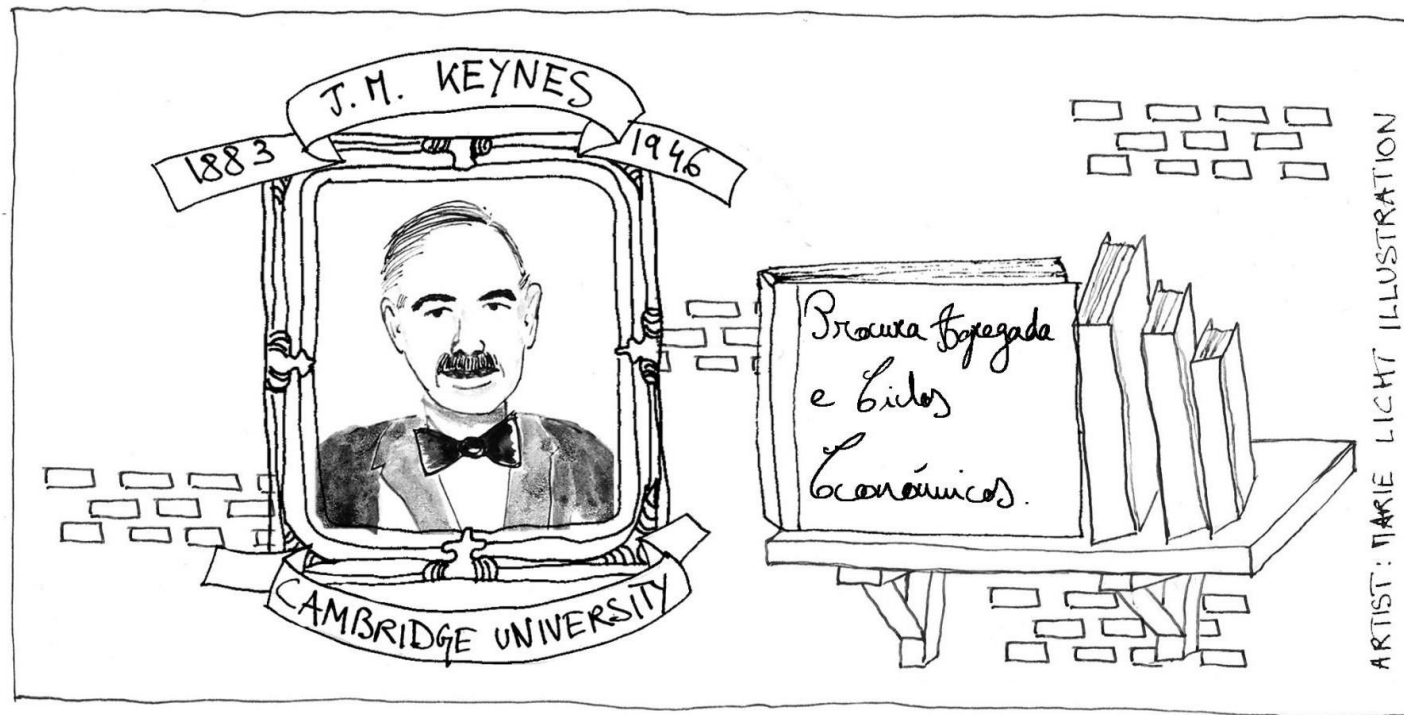 J. M. KEYNES
1883
1946
CAMBRIDGE UNIVERSITY
Procura Agregada
e Ciclos
Económicos.
ARTIST: MARIE LICHT ILLUSTRATION